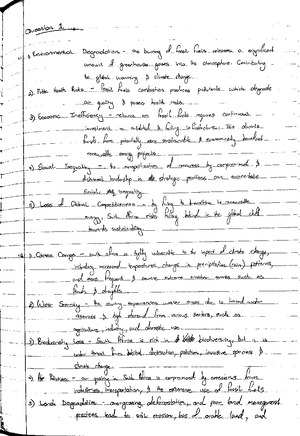 Question 1
1.) Environmental Degradation - the burning of fossil fuels releases a significant
amount of greenhouse gases into the atmosphere. Contributing
to global warming & climate change.
2) Public Health Risks - fossil fuels combustion produces pollutants which degrade
air quality & poses health risks.
3) Economic Inefficiency - reliance on fossil fuels requires continuous
investment in
funds from potentially more sustainable & economically beneficial
renewable energy projects.
4) Social Inequality - the monopolization of resources by compromised &
dishonest leadership in strategic positions can exacerbate
societal inequality.
5) Loss of Global Competitiveness - by failing to transition to renewable
energy, South Africa risks falling behind in the global shift
towards sustainability.
1) Climate Change - South Africa is highly vulnerable to the impact of climate change,
including increased temperatures, changes in precipitation (rain) patterns,
and more frequent & severe extreme weather events such as
floods & droughts.
2) Water Scarcity - the country experiences water stress due to limited water
resources & high demand from various sectors, such as
agriculture, industry, and domestic use.
3) Biodiversity Loss - South Africa is rich in biodiversity, but it is
under threat from habitat destruction, pollution, invasive species &
climate change.
4) Air Pollution - air quality in South Africa is compromised by emissions from
industries, transportation, & the extensive use of fossil fuels.
5) Land Degradation - overgrazing, deforestation, and poor land management
practices lead to soil erosion, loss of arable land, and